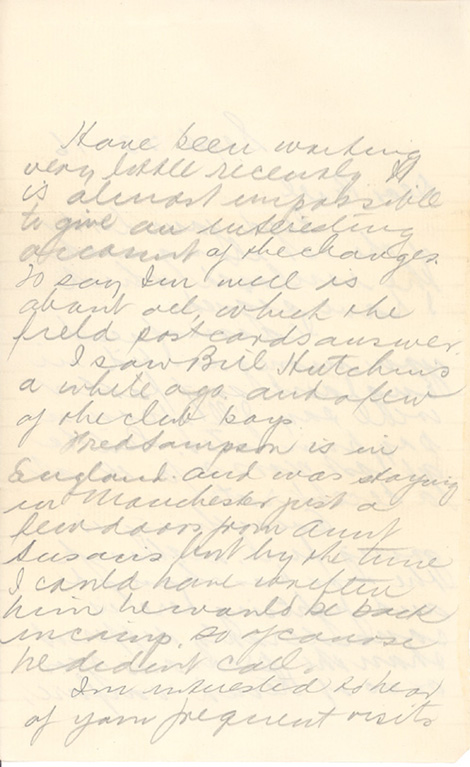 Have been writing
very little recently It
is almost impossible
to give an interesting
account of the changes.
To say Im well is
about all, which the
field postcards answer.
I saw Bill Hutchins
a while ago. and a few
of the club boys.
Fred Sampson is in
England. and was staying
in Manchester just a
few doors from Aunt
Susans but by the time
I could have written
him he would be back
in camp, so of course
he didint call.
Im interested to hear
of your frequent visits